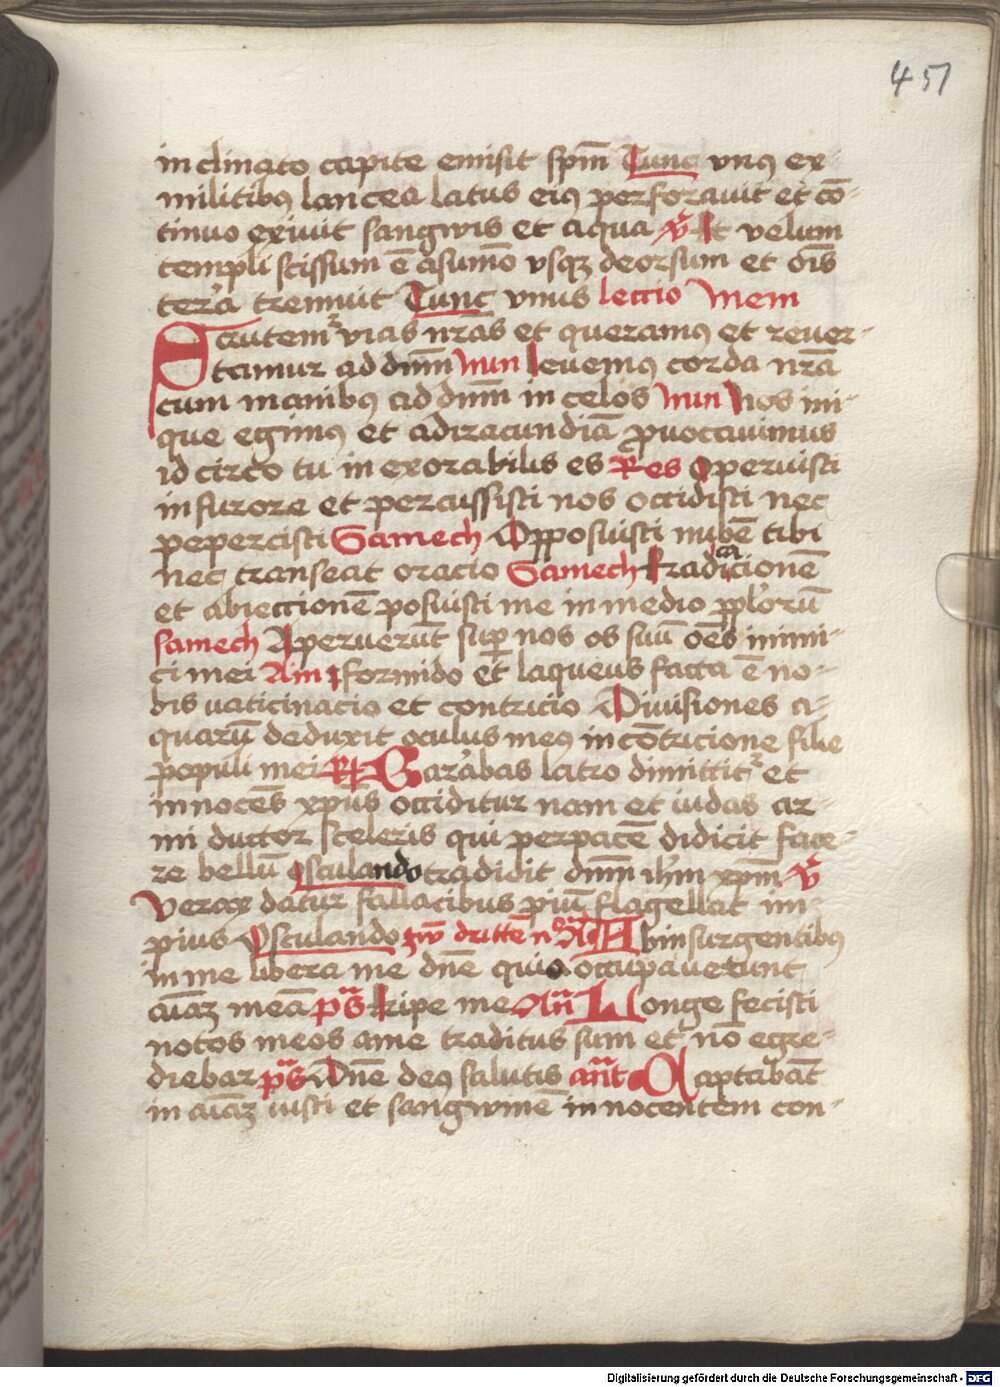 451
inclinato capite emisit spm̄ Tunc vnꝰ ex
militibꝰ lancea latus eiꝰ perforauit et cō-
tinuo exiuit sangwis et aqua v̄ Et velum
templi scissum ē asum̄o vsqꝫ deorsum et oīs
terͣa tremuit Tunc vnus lectio Mem
Scrutemͬ vias nrās et queramꝰ et reuer-
tamur ad dnm̄ Nun leuemꝰ corda nrā
cum manibꝰ ad dnm̄ in celos Nun Nos ini-
que egimꝰ et adiracundiā ꝓuocauimus
idcirco tu inexorabilis es Res Operuisti
in furore et percussisti nos occidisti nec
pepercisti Samech Opposuisti nubē tibi
nec transeat oratio Samech Eradicacionē
et abiectionē posuisti me in medio pplorū
Samech Aperuerūt suꝑ nos os suū oēs inimi-
ci mei Ain formido et laqueus facta ē no-
bis uaticinacio et contricio Diuisiones a-
quarū deduxit oculus meꝰ in cōtricione filie
populi mei R Barͣabas latro dimittitͬ et
innocēs xpūs occiditur nam et iudas ar-
mi ductor sceleris qui perpacē didicit face-
re bellū osculando tradidit dnm̄ ihm̄ xpm̄ v̄
Verax datur fallacibus piū flagellat im-
pius Osculando zw̄ drittē n an̄ Ab insurgentibꝰ
in me libera me dn̄e quia occupauerunt
aīaꝫ meā pͣs Eripe me An̄ Longe fecisti
notos meos ame traditus sum et nō egre-
diebar pͣs Dn̄e deꝰ salutis an̄t Captabāt
in aīaꝫ iusti et sangwinē innocentem con-
Digitalisierung gefördert durch die Deutsche Forschungsgemeinschaft - DFG